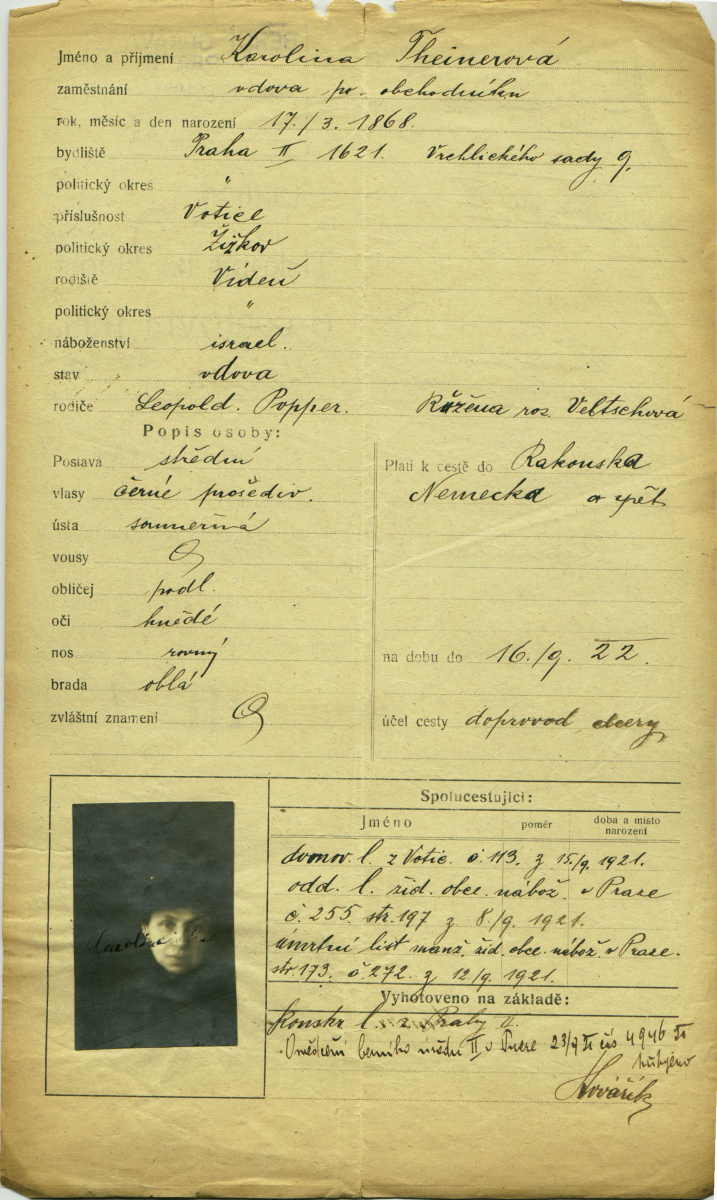 Jméno a příjmení Karolina Theinerová
zaměstnání vdova po obchodníku
rok, měsíc a den narození 17./3. 1868.
bydliště Praha II 1621. Vrchlického sady 9.
politický okres "
příslušnost Votice
politický okres Žižkov
rodiště Vídeň
politický okres "
náboženství israel.
stav vdova
rodiče Leopold Popper. Růžena roz. Veltschová
Popis osoby:
Postava střední
vlasy černé prošediv.
ústa souměrná
vousy
obličej podl.
oči hnědé
nos rovný
brada oblá
zvláštní znamení
Platí k cestě do Rakouska
Německa a zpět
na dobu do 16./9. 22.
účel cesty doprovod dcery
Spolucestující:
Jméno poměr doba a místo narození
domov. l. z Votic. č. 113. z 15/9. 1921.
odd. l. žid. obce. nábož. v Praze
č. 255 str. 197 z 8./9. 1921.
úmrtní list manž. žid. obce. nábož. v Praze.
str. 173. č. 272. z 12/9. 1921.
Vyhotoveno na základě:
Konskr. l. z Prahy II.
berního II v 23/9 čís 4946
Kovářík